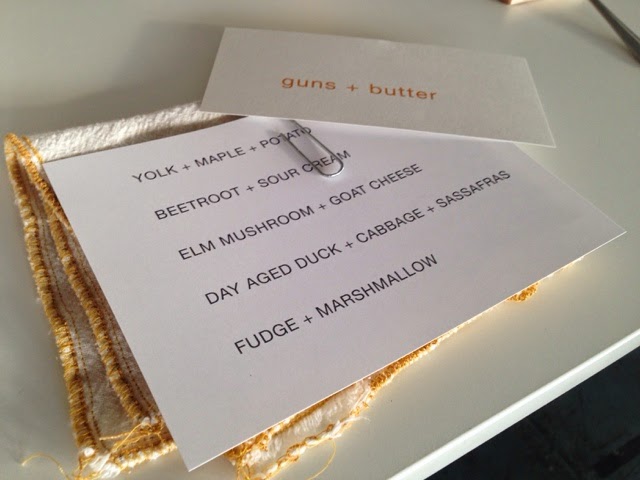 guns + butter
YOLK + MAPLE + POTATO
BEETROOT + SOUR CREAM
ELM MUSHROOM + GOAT CHEESE
DAY AGED DUCK + CABBAGE + SASSAFRAS
FUDGE + MARSHMALLOW